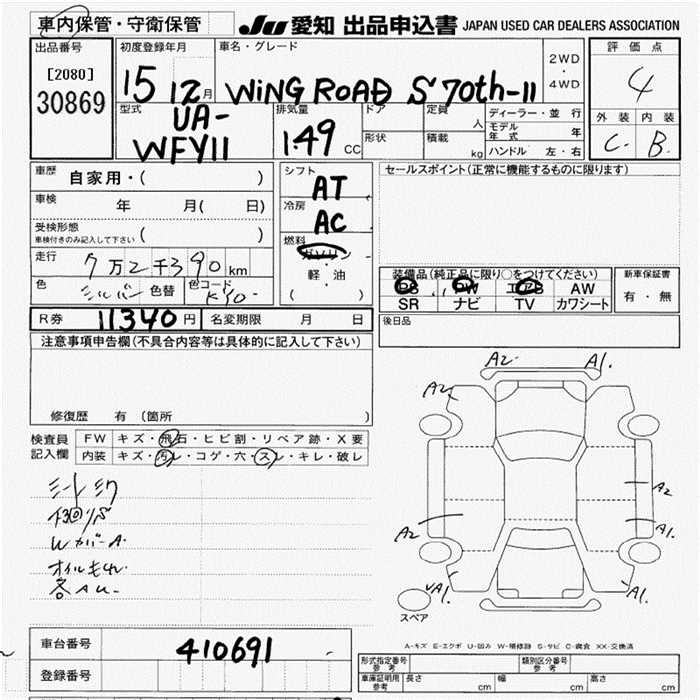 車内保管・守衛保管 JU 愛知 出品申込書 JAPAN USED CAR DEALERS ASSOCIATION
出品番号 初度登録年月 車名・グレード 2WD・4WD 評価点
[2080] 15 12月 WiNG ROAD S 70th-11 4
30869
型式 排気量 ドア 定員 人 ディーラー・並行 外装 内装
UA- 1.49 CC 形状 積載 kg モデル年式 年 C. B.
WFY11 ハンドル 左・右
車歴 自家用・( ) シフト AT セールスポイント(正常に機能するものに限ります)
車検 年 月( 日) 冷房 AC
受検形態 ( )
車検付きのみ記入して下さい
燃料 ガソリン・軽油 ( )
走行 7万2千390km 装備品(純正品に限り○をつけてください) 新車保証書
色 シルバー 色替 色コード KY0- PS PW エアB AW 有・無
SR ナビ TV カワシート
R券 11340円 名変期限 月 日 後日品
注意事項申告欄(不具合内容等は具体的に記入して下さい)
修復歴 有 (箇所
検査員記入欄 FW キズ・飛石・ヒビ割・リペア跡・X要
内装 キズ・汚レ・コゲ・穴・スレ・キレ・破レ
A2- A1.
A2-
A2
A2 A1.
VA1. A1.
スペア
Wカバ-A.
A-キズ E-エクボ U-凹み W-補修跡 S-サビ C-腐食 XX-交換済
車台番号 410691
登録番号
形式指定番号 参考 類別区分番号 参考
車庫証明用 参考 長さ cm 幅 cm 高さ cm